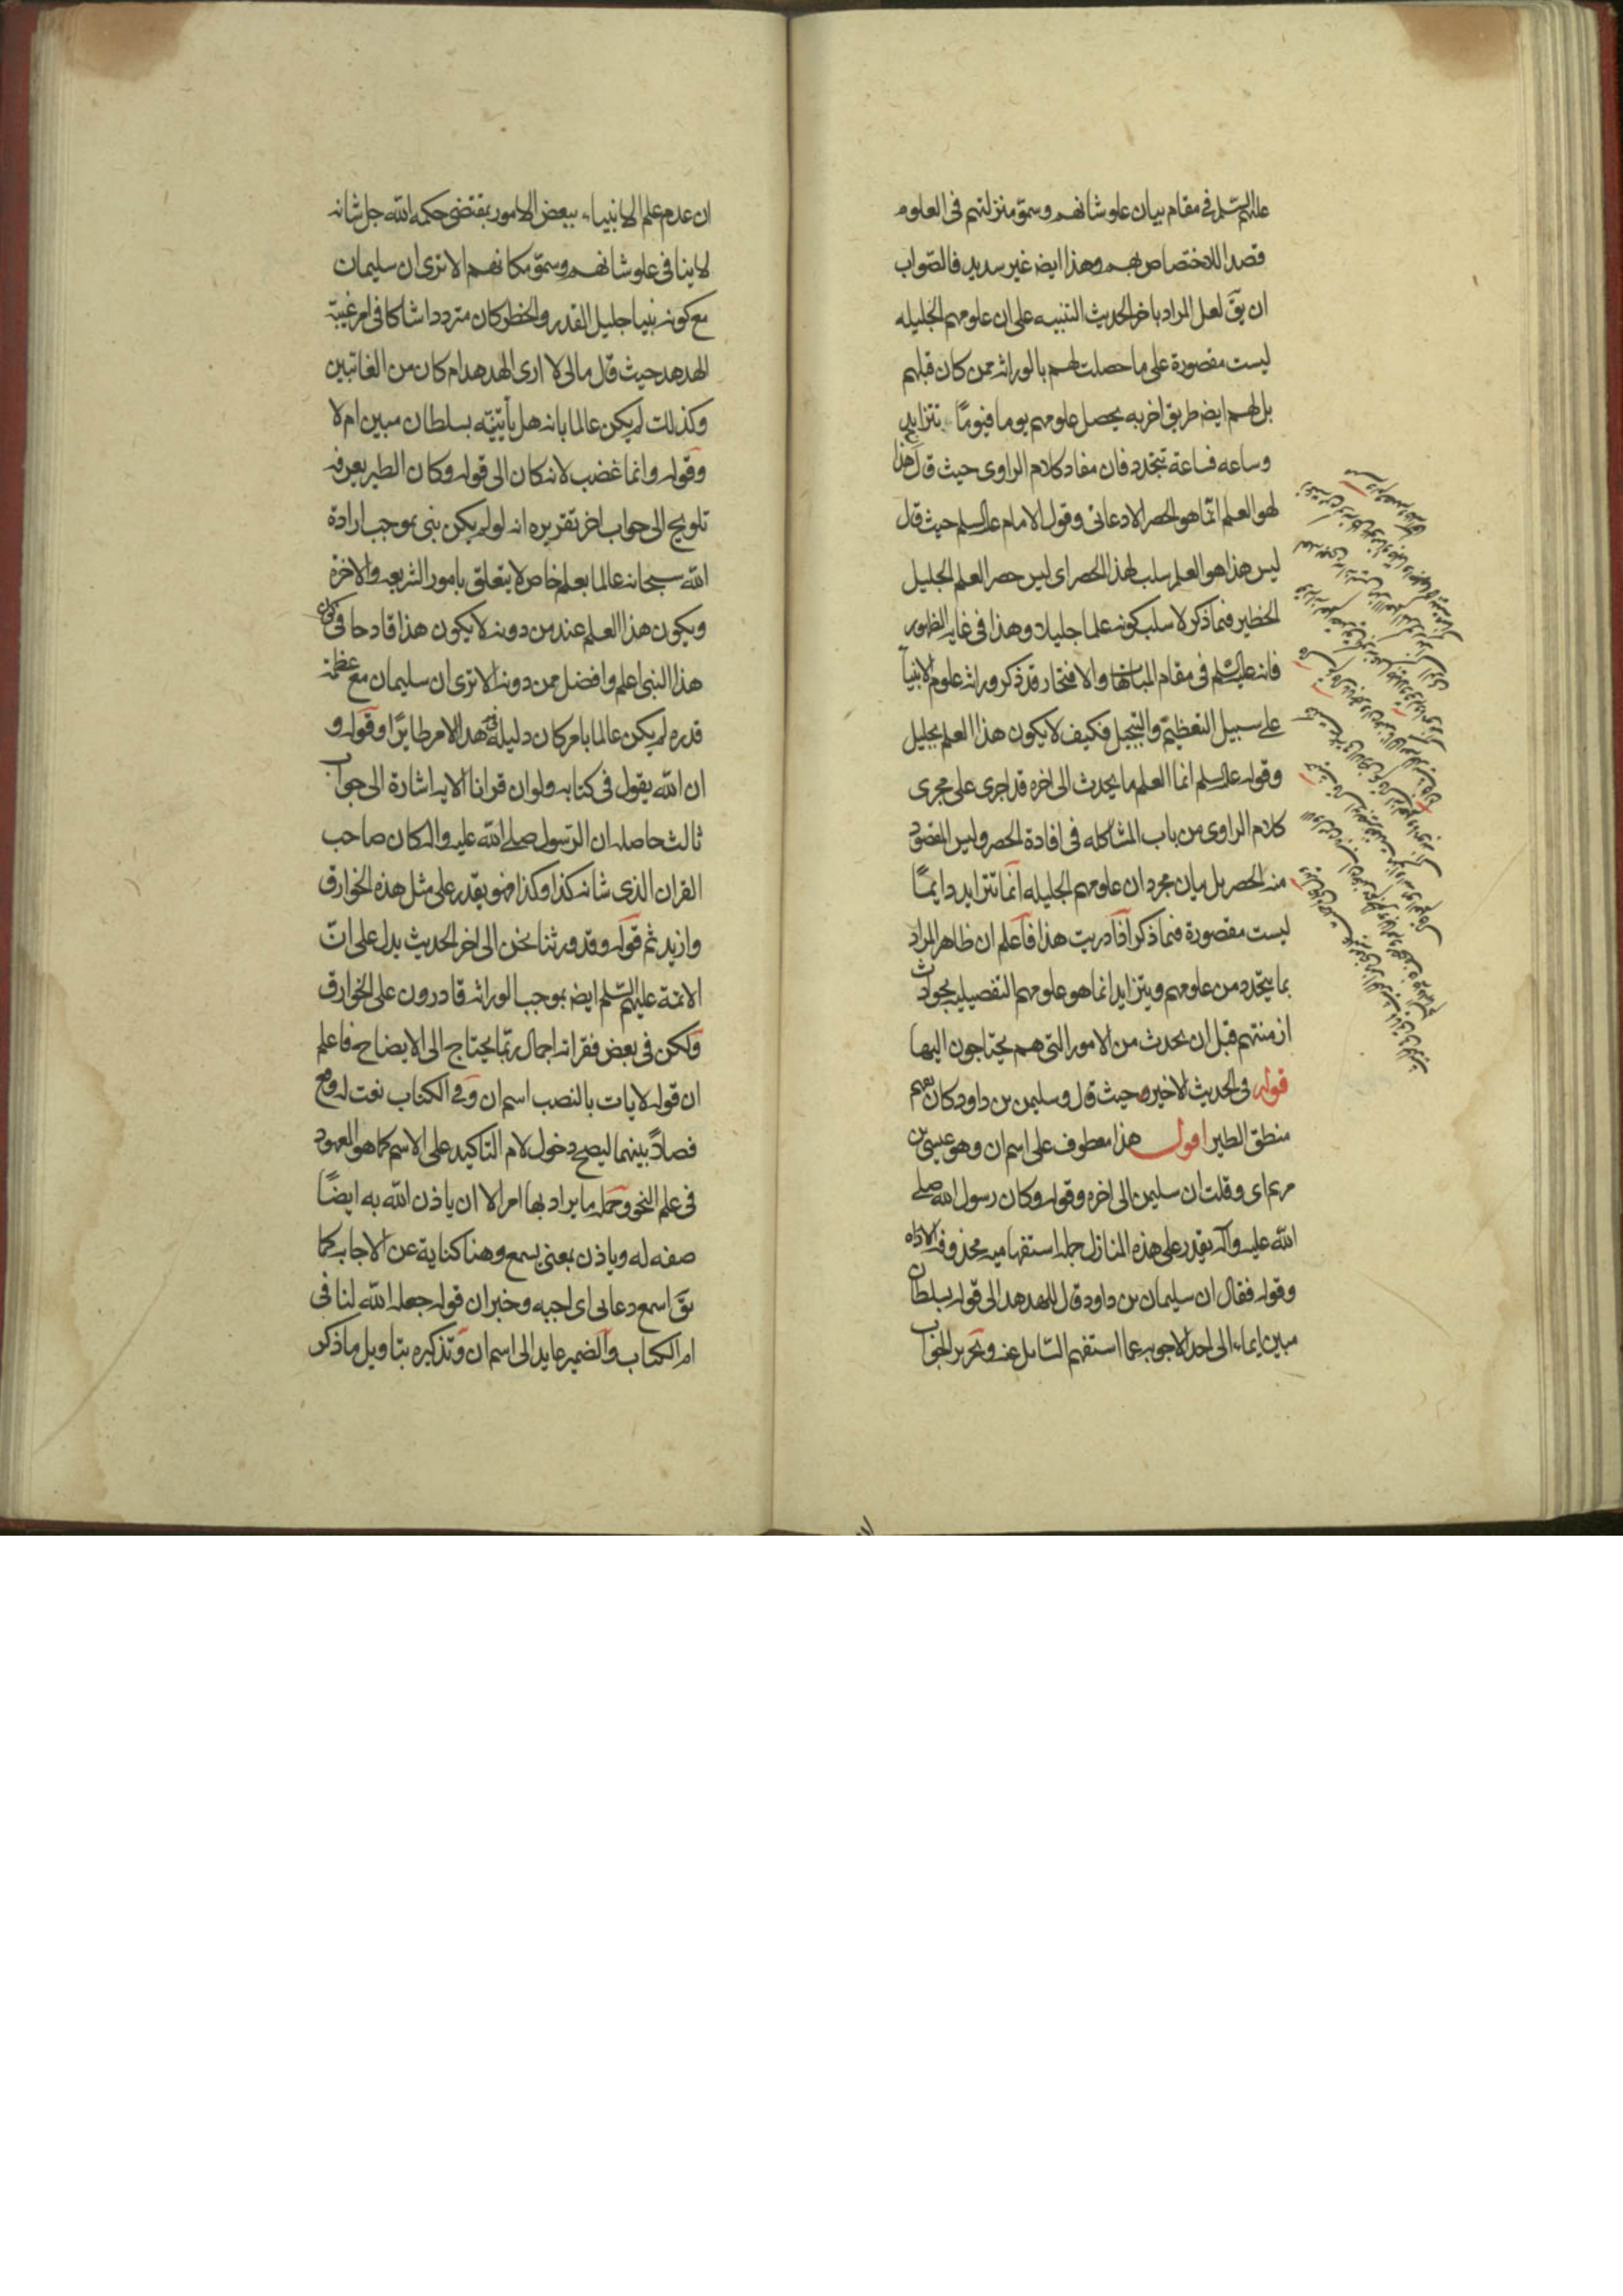 عليهم السلم في مقام بيان علو شانهم وسمو منزلتهم فى العلوم
قصدا للاختصاص بهم وهذا ايضه غير سديد فالصواب
ان يقٓ لعل المراد باخر الحديث التنبيه على ان علومهم الجليله
ليست مقصورة على ما حصلت لهم بالوراثه ممن كان قبلهم
بل لهم ايضه طريق اخر به يحصل علومهم يوما فيومًا تتزايد
وساعه فساعة تتجدد فان مفاد كلام الراوى حيث قال هذا
لهو العلم انما هو الحصر الادعائى وقول الامام عليه السلم حيث قال
ليس هذا هو العلم سلب لهذا الحصر اى ليس حصر العلم الجليل
الخطير فيما ذكر لا سلب كونه علما جليلا وهذا فى غايه الظهور
فانه عليه السلم فى مقام المباهاة والافتخار قد ذكر وراثه علوم الانبيآ
على سبيل التعظيم والتبجيل فكيف لا يكون هذا العلم بجليل
وقوله عليه السلم انما العلم ما يحدث الى اخره قد اجرى على مجرى
كلام الراوى من باب المشاكله فى افادة الحصر وليس المقصود
منه الحصر بل بيان مجرد ان علومهم الجليله انما تتزايد دايمًا
ليست مقصورة فيما ذكر اذا دريت هذا فاعلم ان ظاهر المراد
بما يتجدد من علومهم ويتزايد انما هو علومهم التفصيليه بحوادث
ازمنتهم قبل ان يحدث من الامور التى هم يحتاجون اليها
قوله فى الحديث الاخير حيث قال وسليمن بن داود كان يفهم
منطق الطير اقول هذا معطوف على اسم ان وهو عيسى بن
مريم اى وقلت ان سليمن الى اخره وقوله وكان رسول الله صلى
الله عليه وآله يقدر على هذه المنازل جمله استفهاميه محذوفه الاداه
وقوله فقال ان سليمان بن داود قال للهدهد الى قوله بسلطان
مبين ايماء الى احد الاجوبه عما استفهم السائل عنه وتحرير الجواب
ان عدم علم الانبياء ببعض الامور بمقتضى حكمه الله جل شانه
لا ينافى علو شانهم وسمو مكانهم الا ترى ان سليمان
مع كونه نبيا جليل القدر والخطر كان مترددا شاكا فى امر غيبة
الهدهد حيث قال مالى لا ارى الهدهد ام كان من الغائبين
وكذلك لم يكن عالما بانه هل يأتينه بسلطان مبين ام لا
وقوله وانما غضب لانه كان الى قوله وكان الطير يعرفه
تلويح الى جواب اخر تقريره انه لو لم يكن نبى بموجب ارادة
الله سبحانه عالما بعلم خاص لا يتعلق بامور الشريعه والاخرة
ويكون هذا العلم عند من دونه لا يكون هذا قادحا فى كون
هذا النبى اعلم وافضل ممن دونه الا ترى ان سليمان مع عظمة
قدره لم يكن عالما بامر كان دليله فى هذا الامر طايرًا وقوله و
ان الله يقول فى كتابه ولو ان قرانا الايه اشارة الى جواب
ثالث حاصله ان الرسول صلى الله عليه واله كان صاحب
القران الذى شانه كذا وكذا فهو يقدر على مثل هذه الخوارق
وازيد ثم قوله وقد ورثنا نحن الى اخر الحديث يدل على انّ
الائمة عليهم السلم ايضه بموجب الوراثه قادرون على الخوارق
ولكن فى بعض فقراته اجمال ربما يحتاج الى الايضاح فاعلم
ان قوله لايات بالنصب اسم ان وفى الكتاب نعت له وقع
فصلاً بينهما ليصح دخول لام التاكيد على الاسم كما هو المعهود
فى علم النحو وجمله ما يراد بها امر الا ان ياذن الله به ايضًا
صفه له وياذن بمعنى يسمع وهنا كناية عن الاجابه كما
يقٓ اسمع دعائى اى اجبه وخبر ان قوله جعله الله لنا فى
ام الكتاب والضمير عايد الى اسم ان وتذكيره بتاويل ما ذكر